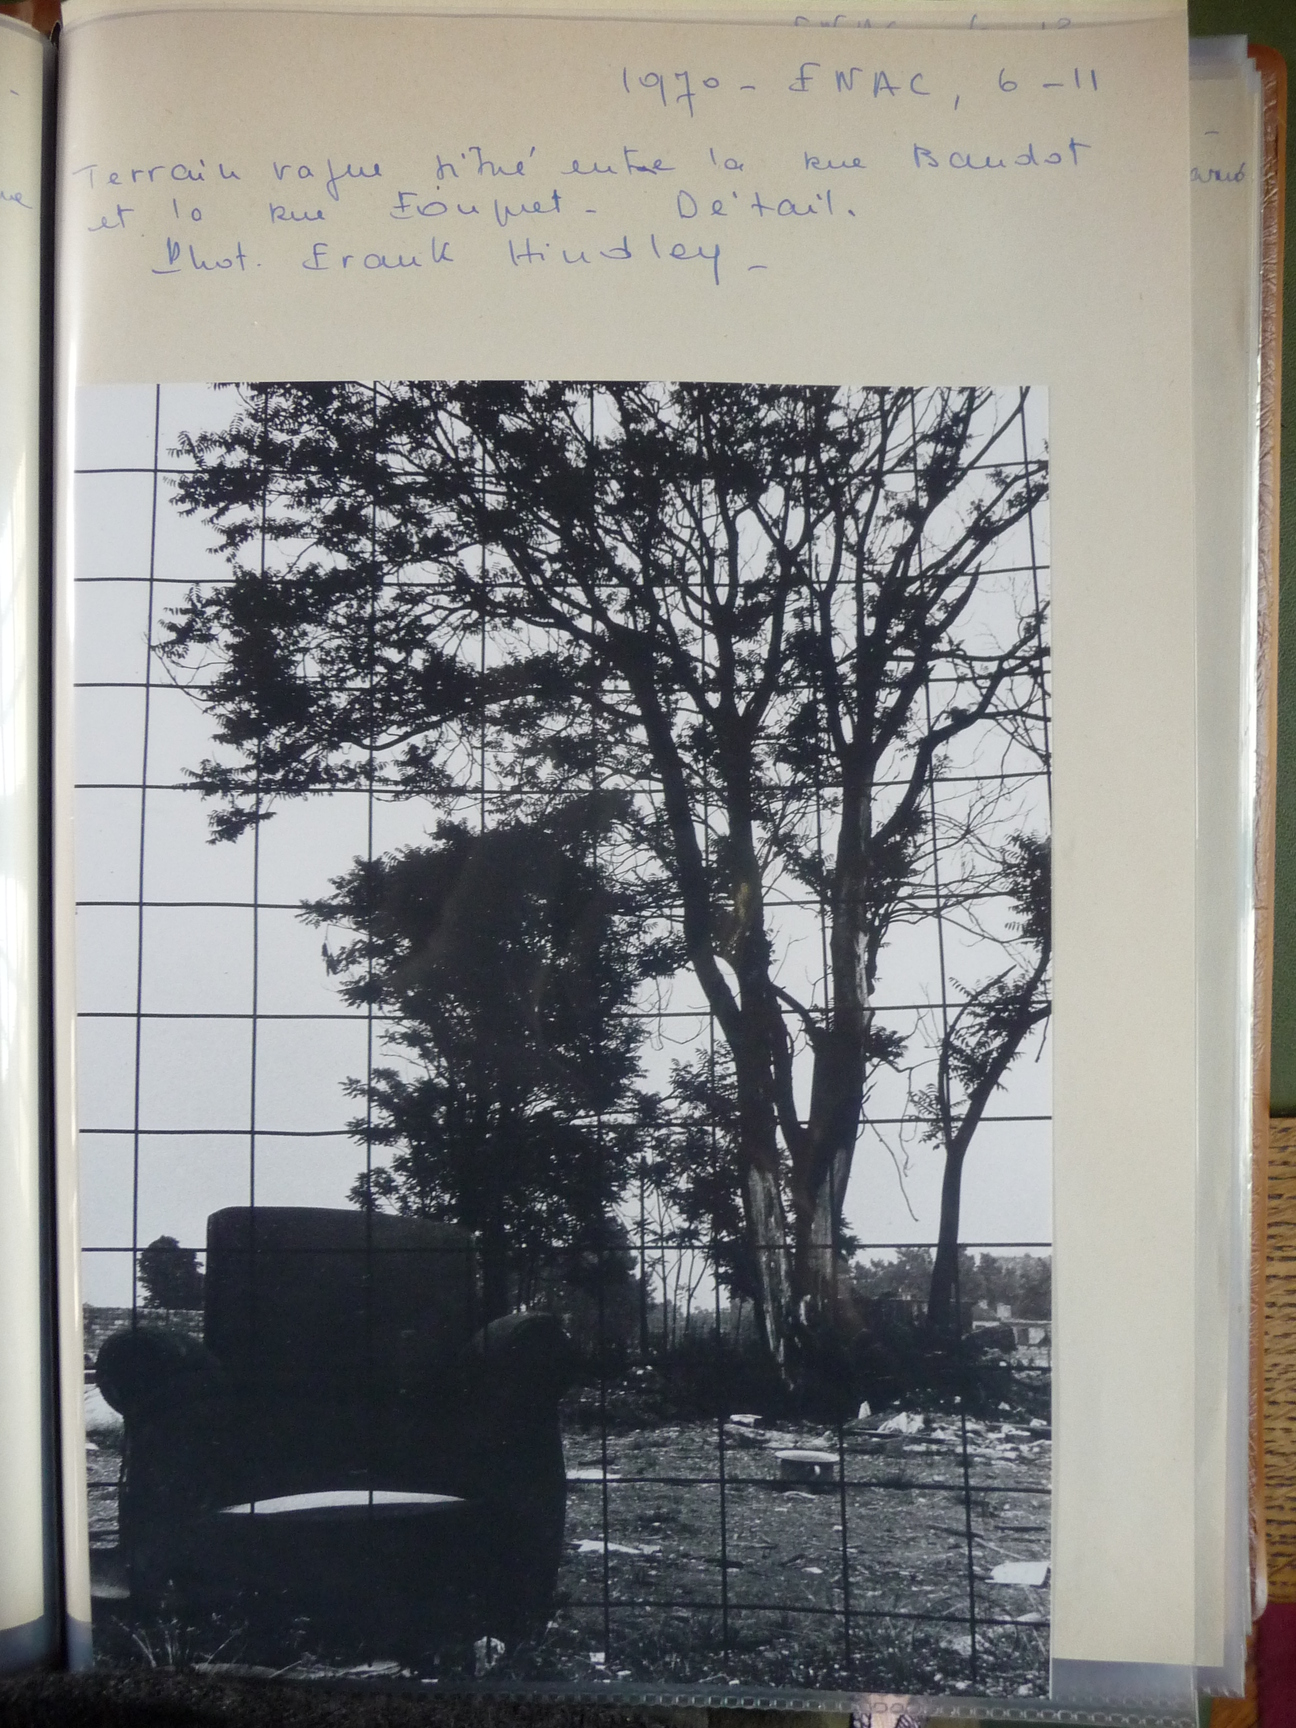 1970 - ENAC, 6-11
Terrain vague situé entre la rue Baudot
et la rue Fouquet - Détail.
Phot. Frank Hindley -